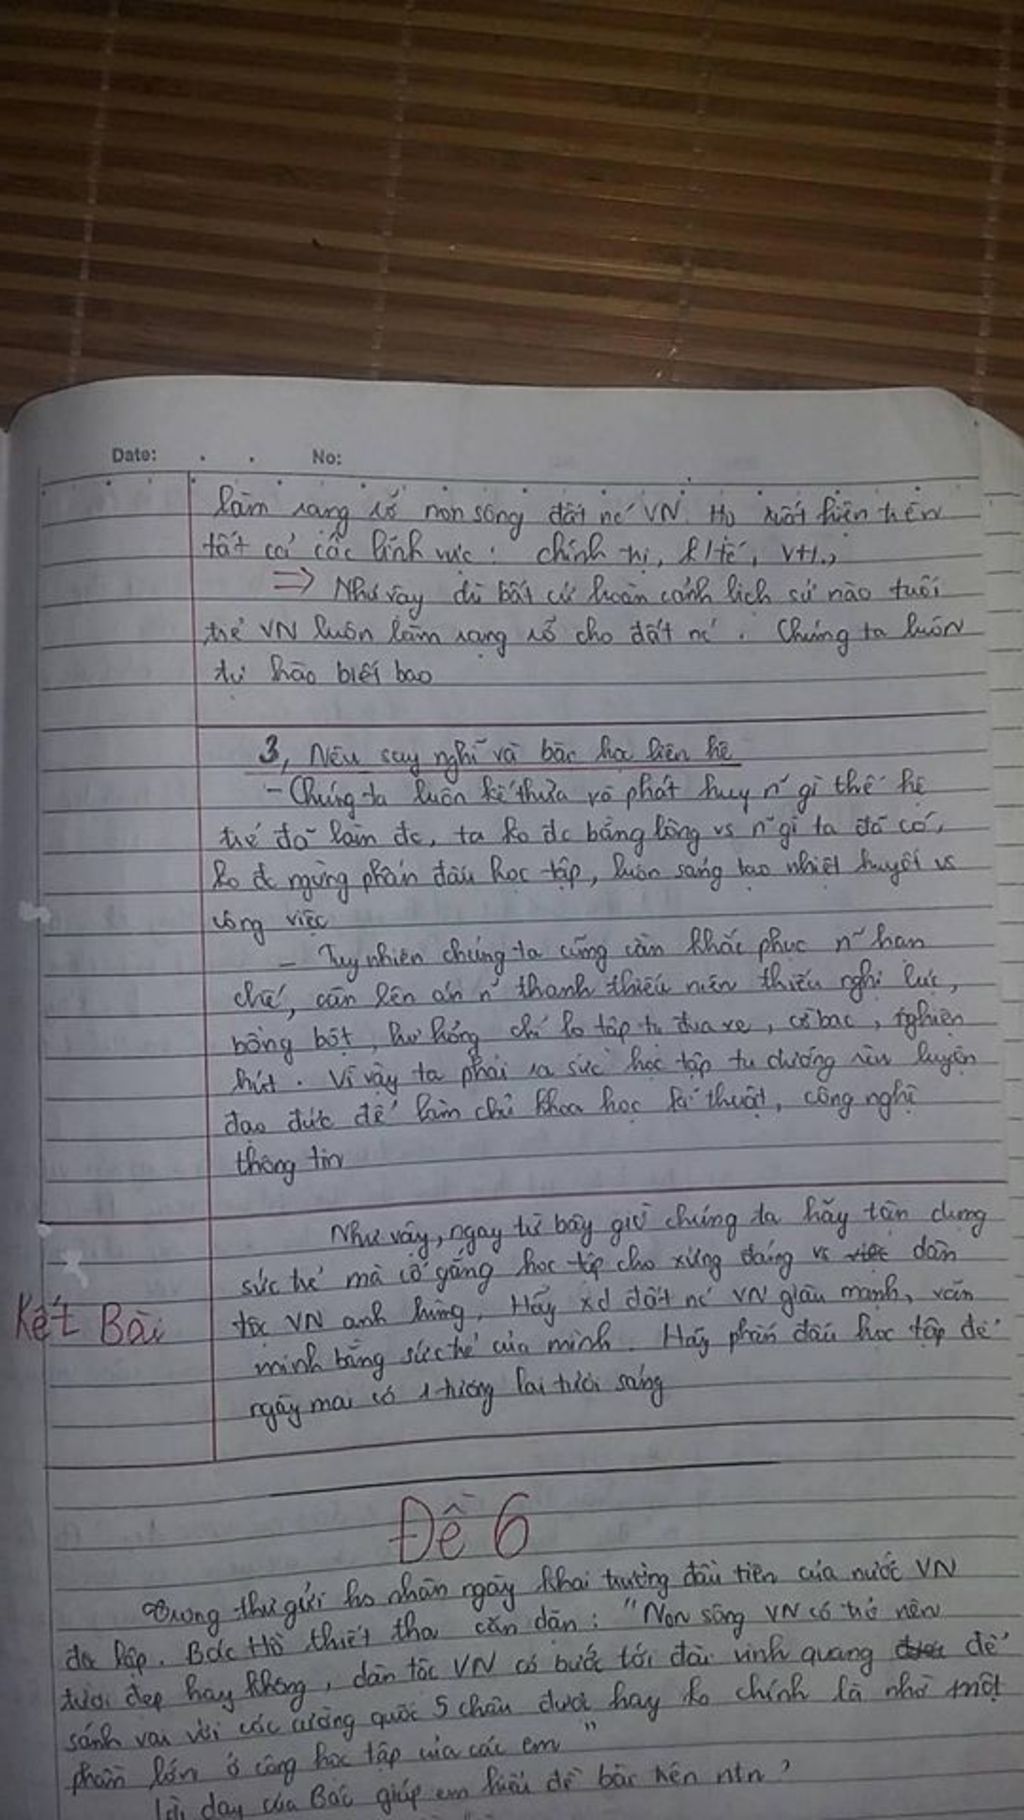 Date: No:
làm rạng rỡ non sông đất nc' VN. Họ xuất hiện trên
tất cả các lĩnh vực: chính trị, k/tế, VH...
=> Như vậy dù bất cứ hoàn cảnh lịch sử nào tuổi
trẻ VN luôn làm rạng rỡ cho đất nc'. Chúng ta luôn
tự hào biết bao
3, Nêu suy nghĩ và bài học liên hệ
- Chúng ta luôn kế thừa và phát huy n~ gì thế hệ
trẻ đã làm đc, ta ko đc bằng lòng vs n~ gì ta đã có,
ko đc ngừng phấn đấu học tập, luôn sáng tạo nhiệt huyết vs
công việc
- Tuy nhiên chúng ta cũng cần khắc phục n~ hạn
chế, cần lên án n~ thanh thiếu niên thiếu nghị lực,
bồng bột, hư hỏng chỉ lo tập tụ đua xe, cờ bạc, nghiện
hút. Vì vậy ta phải ra sức học tập tu dưỡng rèn luyện
đạo đức để làm chủ khoa học kĩ thuật, công nghệ
thông tin
Kết Bài
Như vậy, ngay từ bây giờ chúng ta hãy tận dụng
sức trẻ mà cố gắng học tập cho xứng đáng vs dân
tộc VN anh hùng. Hãy xd đất nc' VN giàu mạnh, văn
minh bằng sức trẻ của mình. Hãy phấn đấu học tập để
ngày mai có 1 tương lai tươi sáng
Đề 6
Trong thư gửi hs nhân ngày khai trường đầu tiên của nước VN
độc lập. Bác Hồ thiết tha căn dặn: "Non sông VN có trở nên
tươi đẹp hay không, dân tộc VN có bước tới đài vinh quang để
sánh vai với các cường quốc 5 châu được hay ko chính là nhờ một
phần lớn ở công học tập của các em"
Lời dạy của Bác giúp em hiểu đề bài trên ntn?